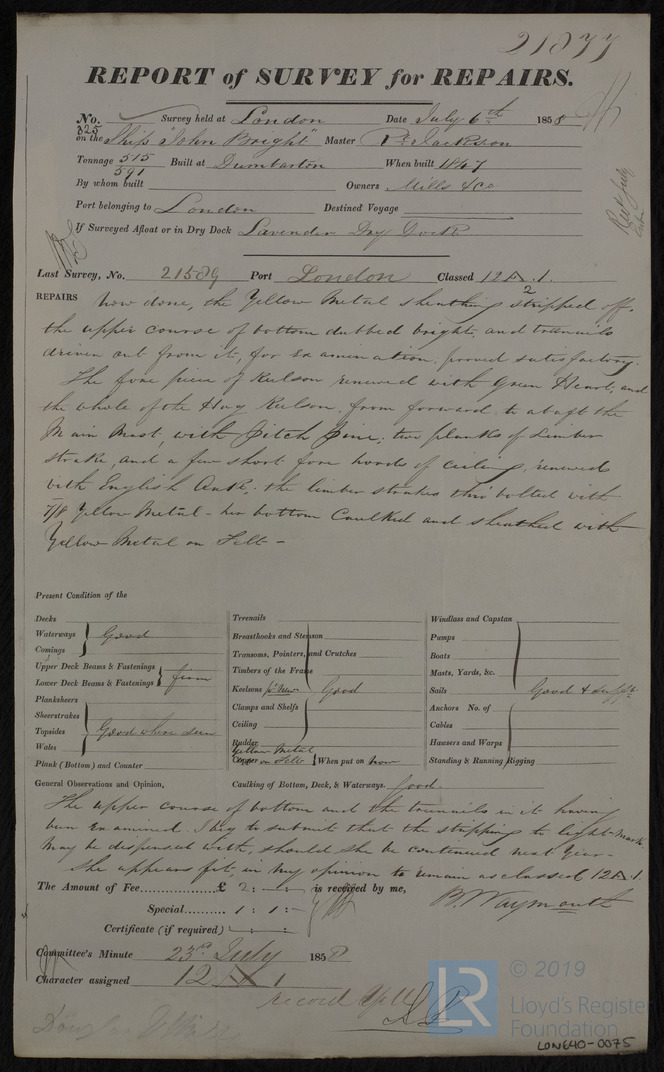 21877
REPORT of SURVEY for REPAIRS.
No. Survey held at London Date July 6th 1858
325
on the Ship "John Bright" Master R. Jackson
Tonnage 515 Built at Dumbarton When built 1847
591
By whom built Owners Mills & Co
Port belonging to London Destined Voyage
If Surveyed Afloat or in Dry Dock Lavender Dry Dock
Last Survey, No. 21589 Port London Classed 12 A 1.
2
REPAIRS Now done, the Yellow Metal sheathing stripped off,
the upper course of bottom dubbed bright, and treenails
driven out from it, for examination, proved satisfactory.
The fore piece of Keelson renewed with Green Heart, and
the whole of the Keelson from forward to abaft the
Main Mast, with Pitch Pine; two planks of Limber
strake, and a few short fore hoods of ceiling, renewed
with English Oak; the limber strakes thro' bolted with
7/8 Yellow Metal - her bottom Caulked and sheathed with
Yellow Metal on Felt -
Present Condition of the
Decks
Waterways Good
Comings
Upper Deck Beams & Fastenings firm
Lower Deck Beams & Fastenings
Planksheers
Sheerstrakes
Topsides Good where seen
Wales
Plank (Bottom) and Counter
Treenails
Breasthooks and Stemson
Transoms, Pointers, and Crutches
Timbers of the Frame
Keelsons pt New Good
Clamps and Shelfs
Ceiling
Rudder
Yellow Metal
Copper on Felt When put on Now
Windlass and Capstan
Pumps
Boats
Masts, Yards, &c.
Sails Good & sufft
Anchors No. of
Cables
Hawsers and Warps
Standing & Running Rigging
General Observations and Opinion, Caulking of Bottom, Deck, & Waterways. Good.
The upper course of bottom and the treenails in it having
been examined. I beg to submit that the stripping to light-mark
may be dispensed with, should she be continued next Year -
She appears fit, in my opinion to remain as classed 12 A 1.
The Amount of Fee............£ 2 : - : - is received by me,
B. Waymouth
Special......... 1 : 1 : -
Certificate (if required) - : - : -
Committee's Minute 23rd July 1858
Character assigned 12 A 1
record
LR © 2019
Lloyd's Register
Foundation
LONE40-0075